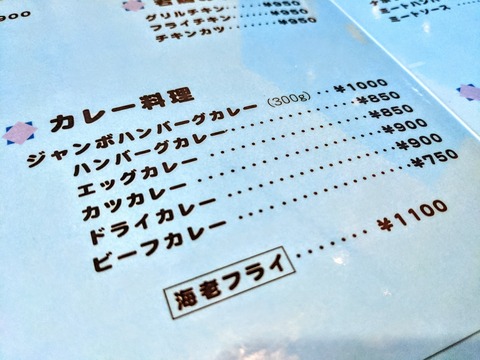 900
グリルチキン ¥950
フライチキン ¥950
チキンカツ ¥950
ミートソース
カレー料理
ジャンボハンバーグカレー (300g) ‥¥1000
ハンバーグカレー ‥‥‥‥‥ ¥850
エッグカレー ‥‥‥‥‥‥ ¥850
カツカレー ‥‥‥‥‥‥ ¥900
ドライカレー ‥‥‥‥‥‥ ¥900
ビーフカレー ‥‥‥‥‥‥ ¥750
海老フライ ‥‥‥‥ ¥1100